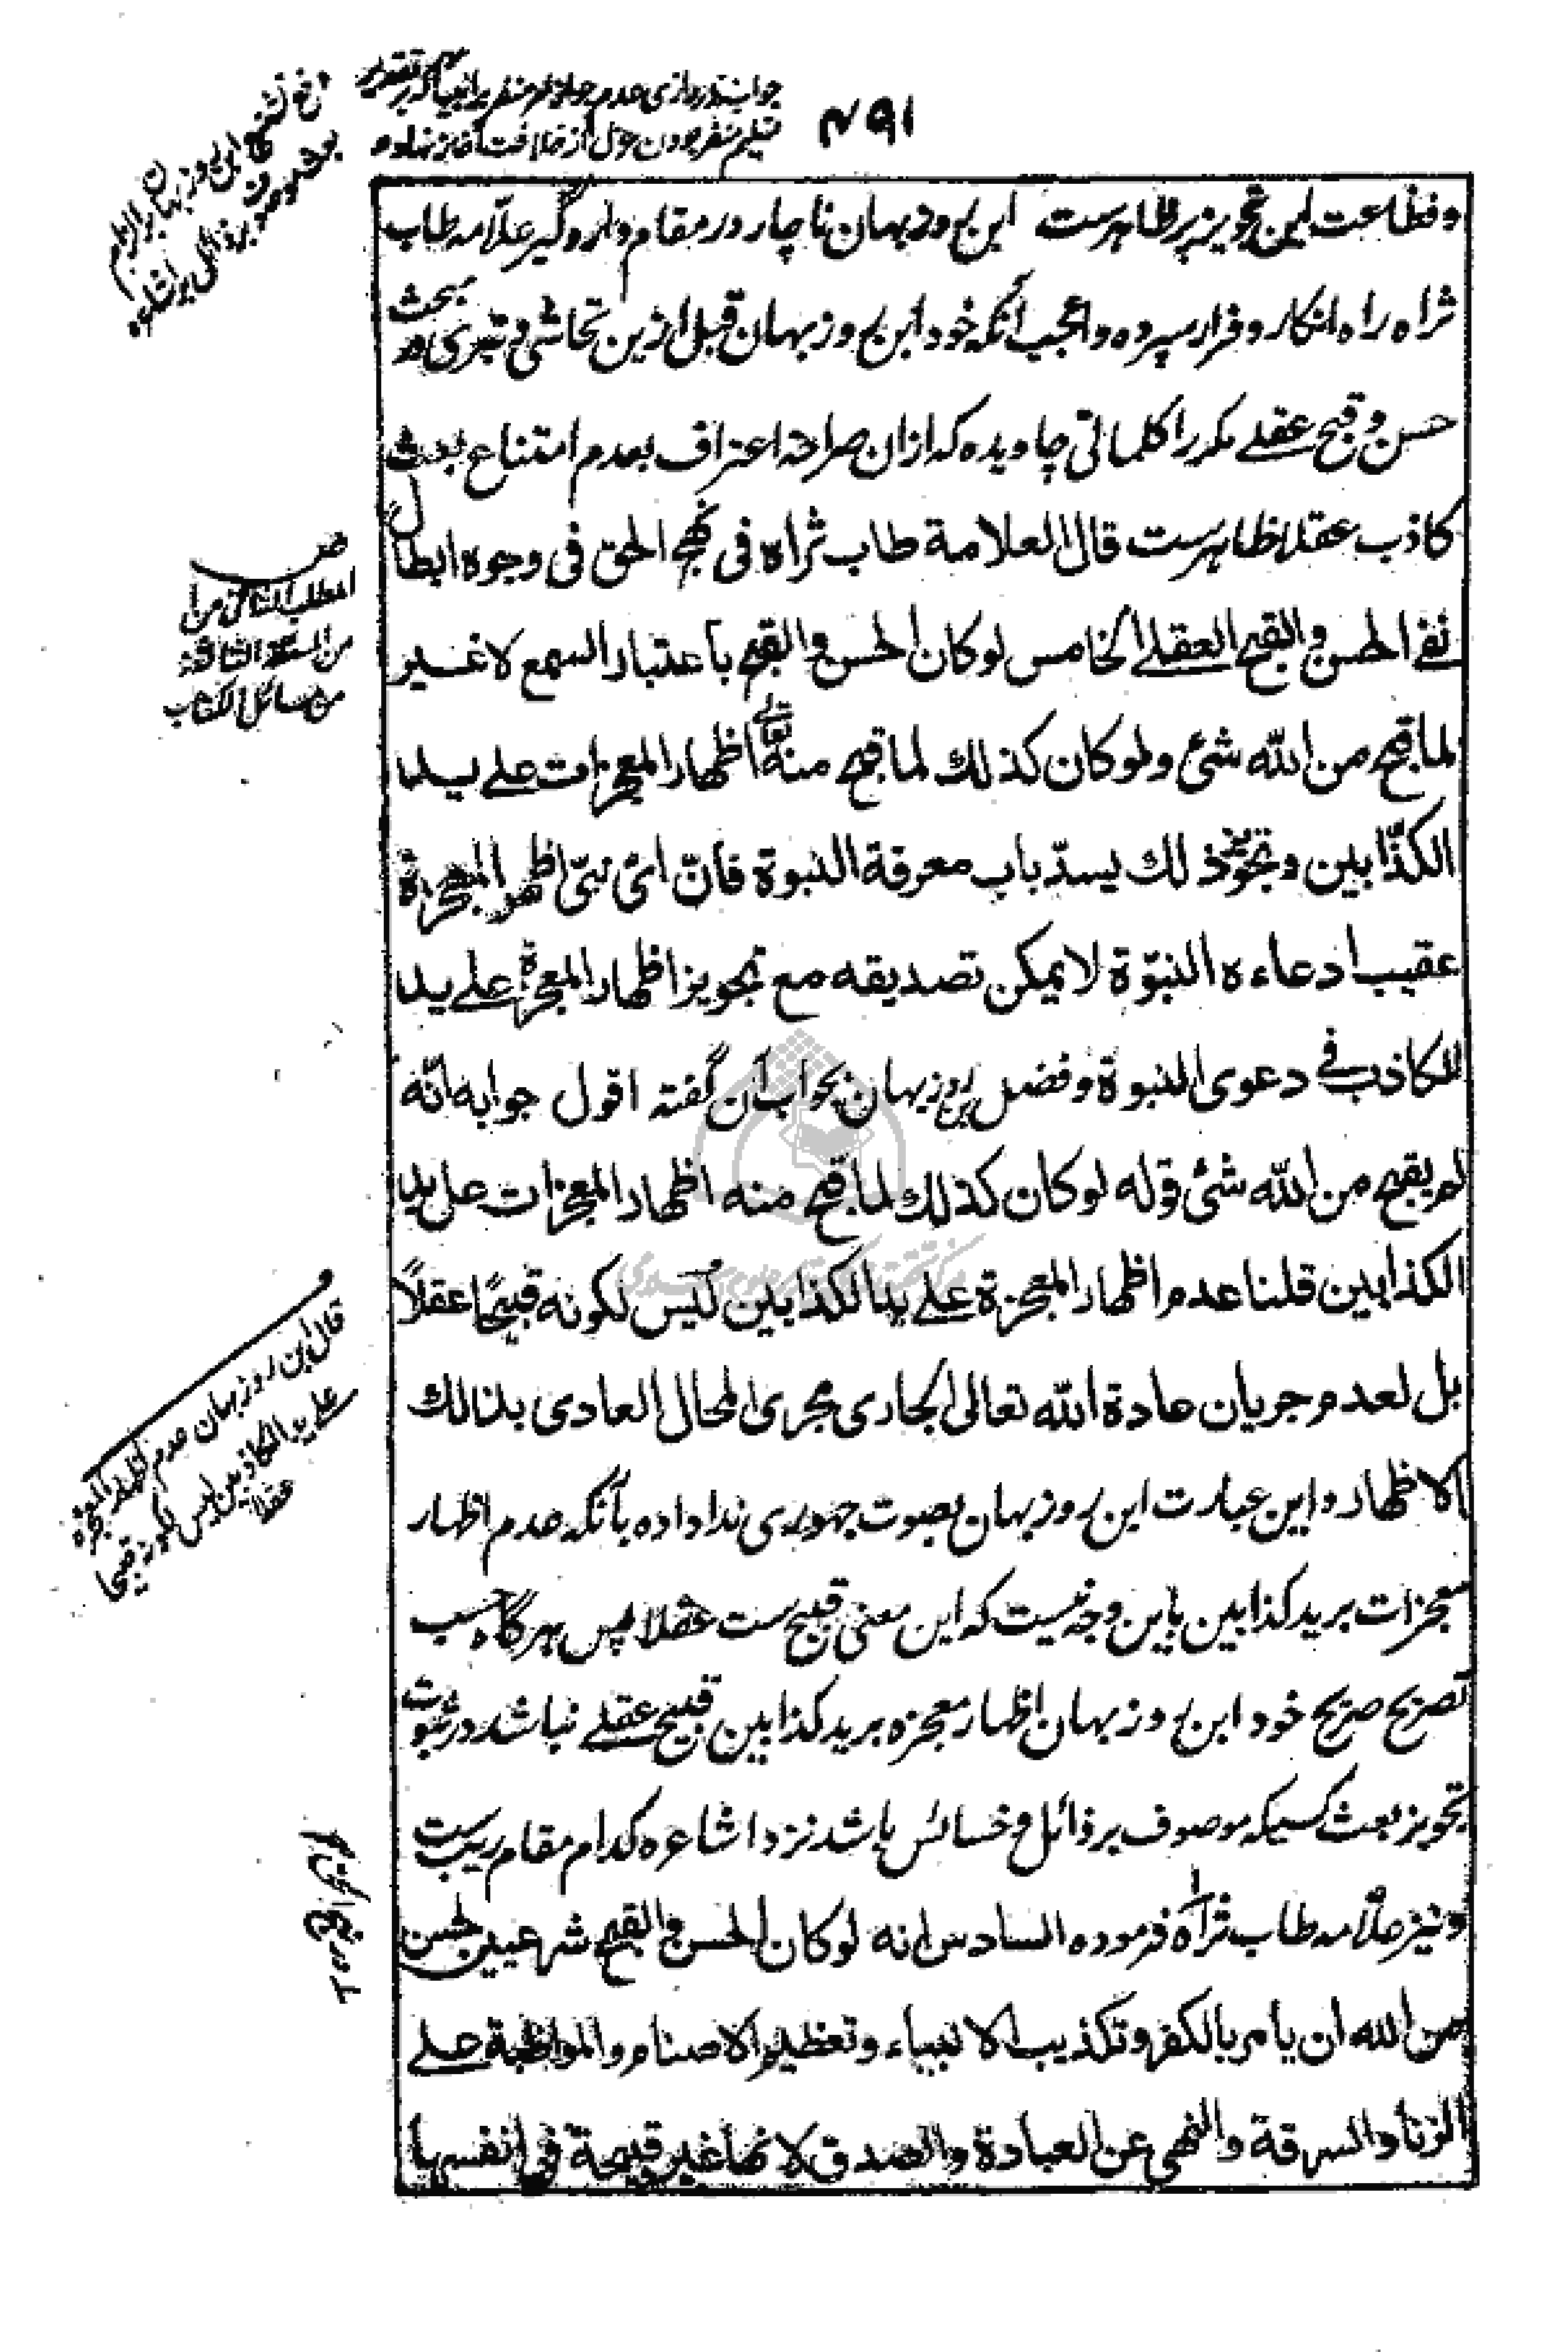 ۴۹۱
وفظاعت این تجویز پر ظاهرست ابن روزبهان ناچار در مقام دار و گیر علّامه طاب
ثراه راه انکار و فرار سپرده و اعجب آنکه خود ابن روزبهان قبل ازین تحاشی و تبری در مبحث
حسن و قبح عقلے مکرر را کلماتی چاویده که ازان صراحة اعتراف بعدم امتناع بعث
کاذب عقلا ظاهرست قال العلامة طاب ثراه فی نهج الحق فی وجوه ابطال
نفے الحسن و القبح العقلے الخامس لو کان الحسن و القبح باعتبار السمع لا غیر
لما قبح من الله شئ ولو کان کذلك لما قبح منه تعالے اظهار المعجزات علے ید
الکذّابین و تجویز ذلك یسدّ باب معرفة النبوة فانّ ائ نبیّ اظهر المعجزة
عقیب ادعاءه النبوّة لا یمکن تصدیقه مع تجویز اظهار المعجزة علے ید
الکاذب فی دعوی النبوة و فضل بن روزبهان بجواب آن گفته اقول جوابه انّه
لم یقبح من الله شئ قوله لو کان کذلك لما قبح منه اظهار المعجزات علی ید
الکذابین قلنا عدم اظهار المعجزة علے ید الکذابین لیس لکونه قبیحًا عقلاً
بل لعدم جریان عادة الله تعالی الجاری مجری المحال العادی بذلك
الاظهار و این عبارت ابن روزبهان بصوت جهوری ندا داده بآنکه عدم اظهار
معجزات برید کذابین باین وجه نیست که این معنی قبیح ست عقلا پس هرگاه حسب
تصریح صریح خود ابن روزبهان اظهار معجزه برید کذابین قبیح عقلے نباشد در ثبوت
تجویز بعث کسیکه موصوف برذائل و خسائس باشد نزد اشاعره کدام مقام ریب ست
و نیز علّامه طاب ثراه فرموده السادس انه لو کان الحسن و القبح شرعیین لحسن
من الله ان یامر بالکفر و تکذیب الانبیاء و تعظیم الاصنام و المواظبة علے
الزنا و السرقة و النهی عن العبادة و الصدق لانها غیر قبیحة فی انفسها
المطلب الثانی من
من المسئلة الثالثة
من مسائل الکتاب
قال ابن روزبهان عدم اظهار المعجزه
علے ید الکاذبین لیس لکونه قبیحا
عقلا